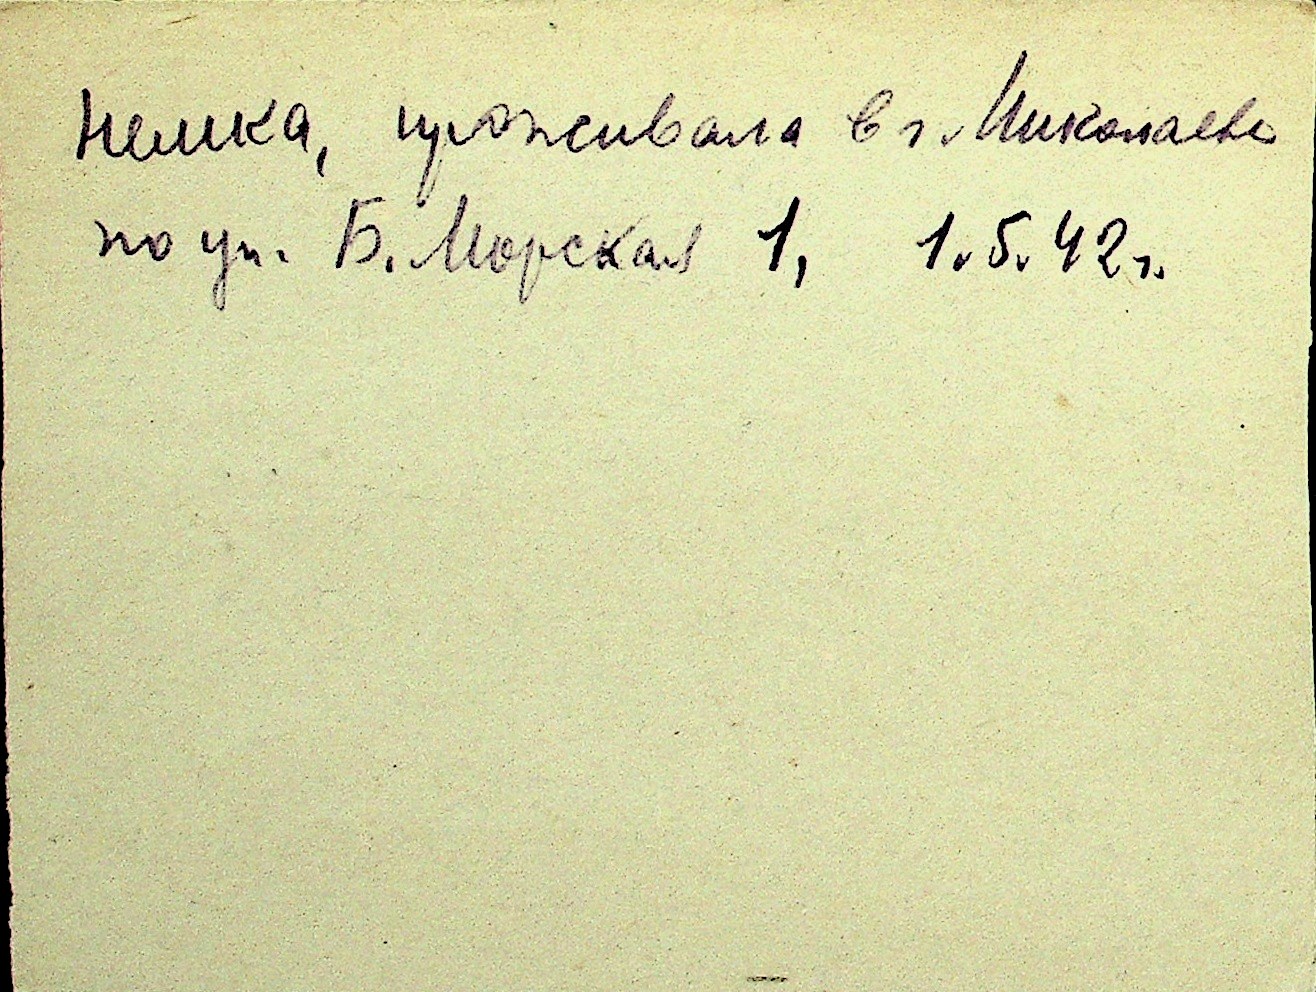 немка, проживала в г. Николаеве
по ул. Б. Морская 1, 1.5.42 г.